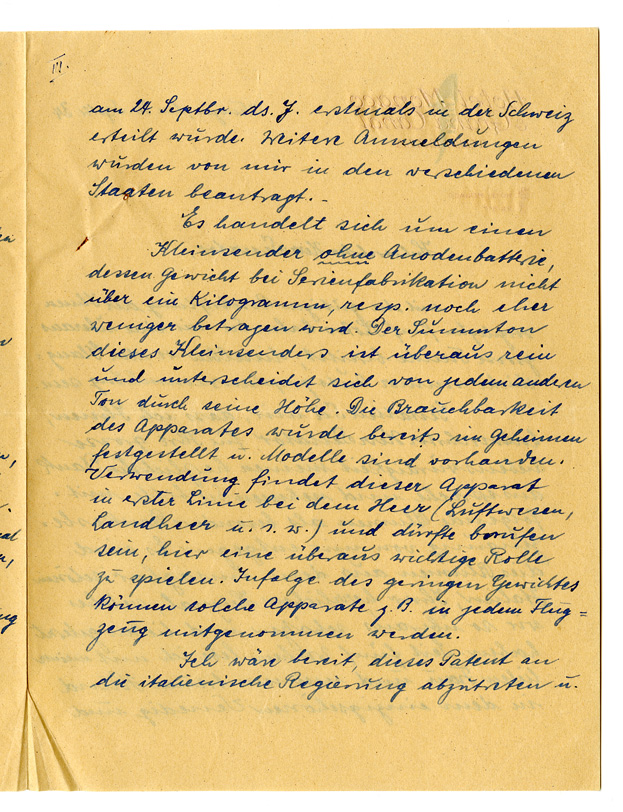 III.
am 24. Septbr. ds. J. erstmals in der Schweiz
erteilt wurde. Weitere Anmeldungen
wurden von mir in den verschiedenen
Staaten beantragt. -
Es handelt sich um einen
Kleinsender ohne Anodenbatterie,
dessen Gewicht bei Serienfabrikation nicht
über ein Kilogramm, resp. noch eher
weniger betragen wird. Der Summton
dieses Kleinsenders ist überaus rein
und unterscheidet sich von jedem andern
Ton durch seine Höhe. Die Brauchbarkeit
des Apparates wurde bereits im Geheimen
festgestellt u. Modelle sind vorhanden.
Verwendung findet dieser Apparat
in erster Linie bei dem Heer (Luftwesen,
Landheer u. s. w.) und dürfte berufen
sein, hier eine überaus wichtige Rolle
zu spielen. Infolge des geringen Gewichtes
können solche Apparate z. B. in jedem Flug=
zeug mitgenommen werden.
Ich wäre bereit, dieses Patent an
die italienische Regierung abzutreten u.